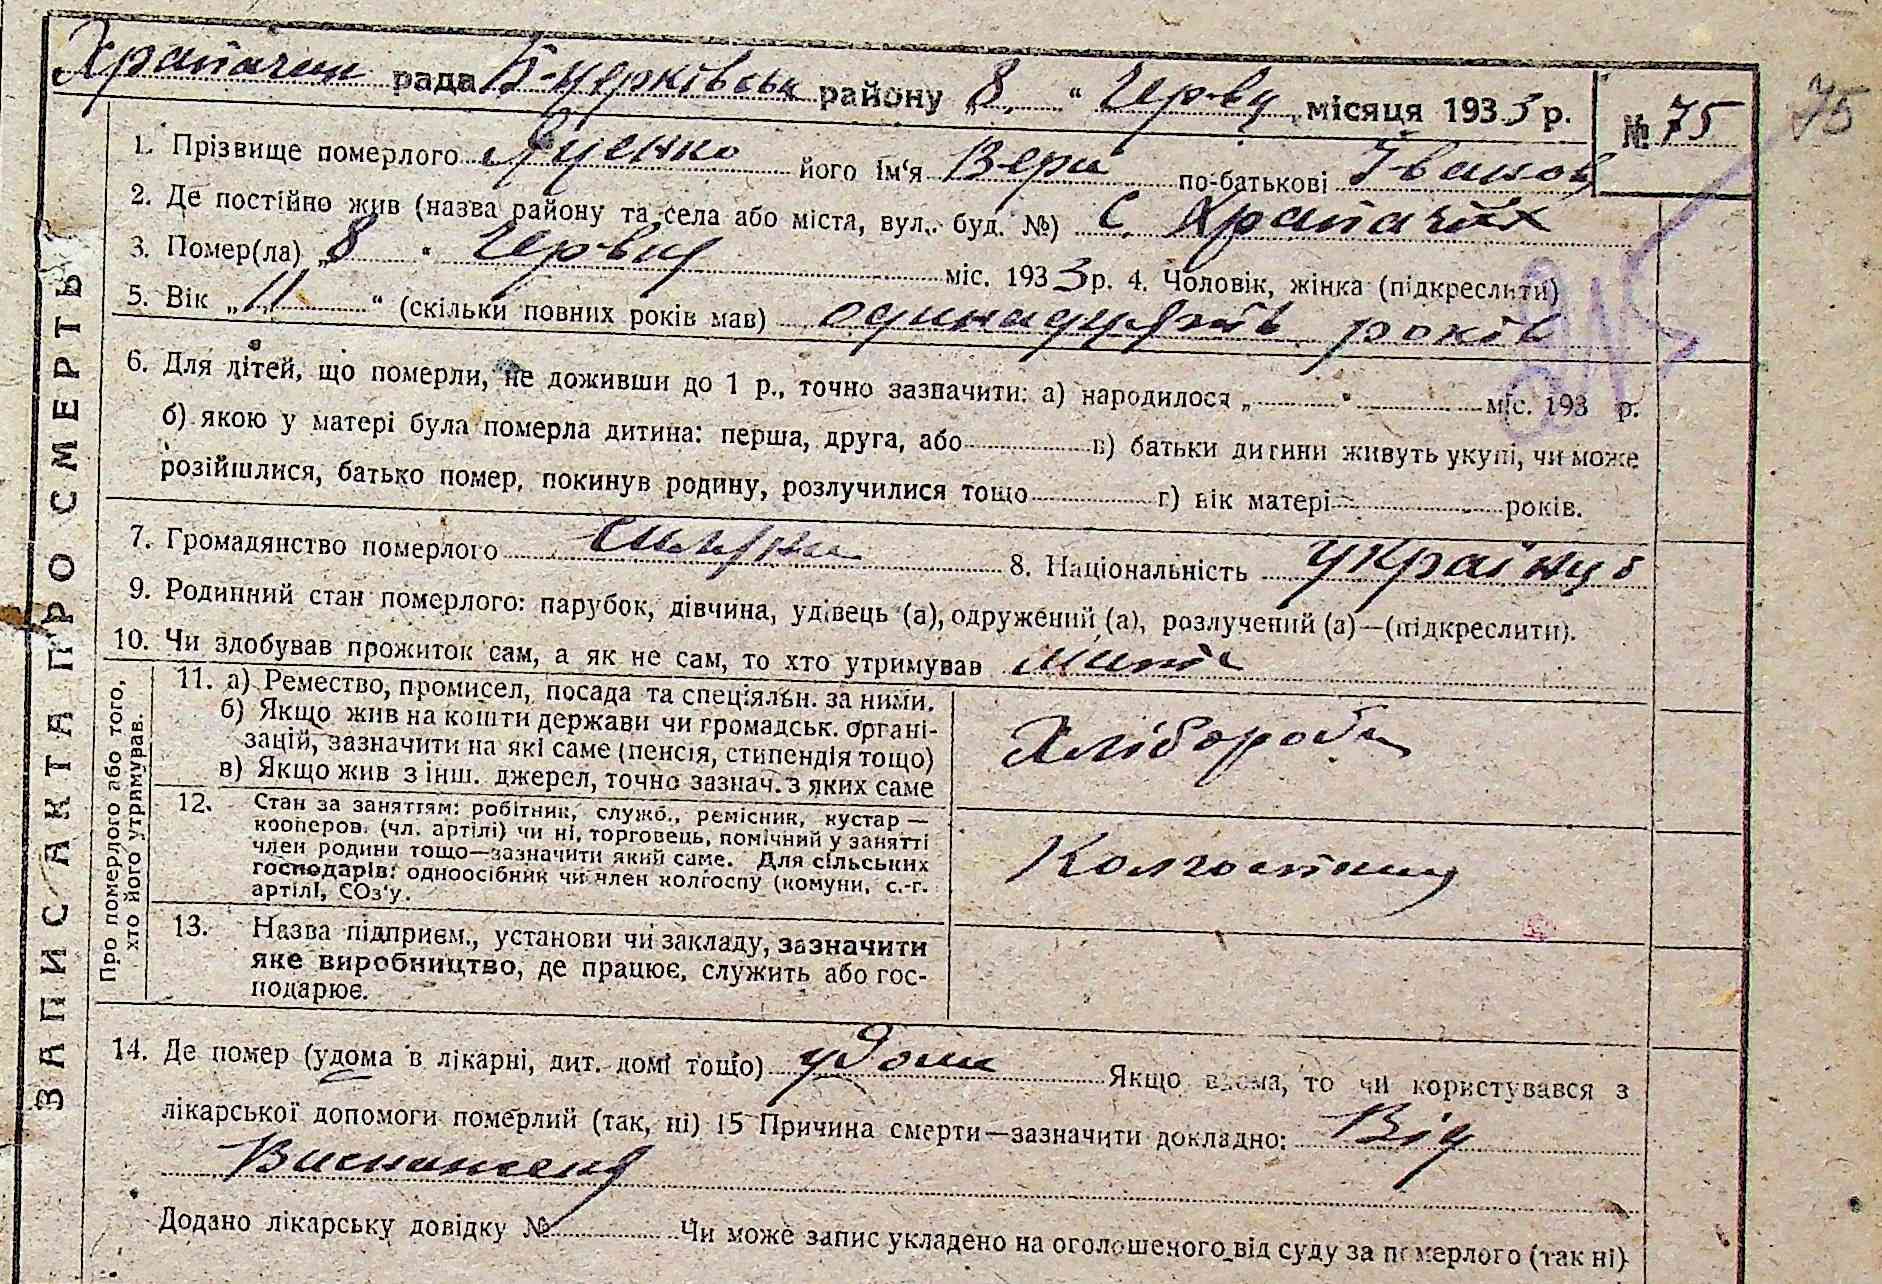 Храпачан рада Б-церківськ району 8 " Червня місяця 1933 р. № 75 75
1. Прізвище померлого Луценко його ім'я Вера по-батькові Іванов
2. Де постійно жив (назва району та села або міста, вул. буд. №) с. Храпачах
3. Помер(ла) „8 " Червня міс. 1933 р. 4. Чоловік, жінка (підкреслити)
5. Вік „ 11 " (скільки повних років мав) одинадцять років
6. Для дітей, що померли, не доживши до 1 р., точно зазначити: а) народилося „ " міс. 193 р.
б) якою у матері була померла дитина: перша, друга, або в) батьки дитини живуть укупі, чи може
розійшлися, батько помер, покинув родину, розлучилися тощо г) вік матері років.
7. Громадянство померлого 8. Національність україн
9. Родинний стан померлого: парубок, дівчина, удівець (а), одружений (а), розлучений (а)—(підкреслити).
10. Чи здобував прожиток сам, а як не сам, то хто утримував мати
ЗАПИС АКТА ПРО СМЕРТЬ
Про померлого або того,
хто його утримував.
11. а) Ремество, промисел, посада та спеціяльн. за ними.
б) Якщо жив на кошти держави чи громадськ. органі-
зацій, зазначити на які саме (пенсія, стипендія тощо)
в) Якщо жив з інш. джерел, точно зазнач. з яких саме
Хлібороб
12. Стан за заняттям: робітник, служб., ремісник, кустар —
кооперов. (чл. артілі) чи ні, торговець, помічний у занятті
член родини тощо—зазначити який саме. Для сільських
господарів: одноосібник чи член колгоспу (комуни, с.-г.
артілі, СОз'у.
Колгоспниц
13. Назва підприєм., установи чи закладу, зазначити
яке виробництво, де працює, служить або гос-
подарює.
14. Де помер (удома в лікарні, дит. домі тощо) удома Якщо вдома, то чи користувався з
лікарської допомоги померлий (так, ні) 15 Причина смерти—зазначити докладно: Від
Виснаження
Додано лікарську довідку № Чи може запис укладено на оголошеного від суду за померлого (так ні)